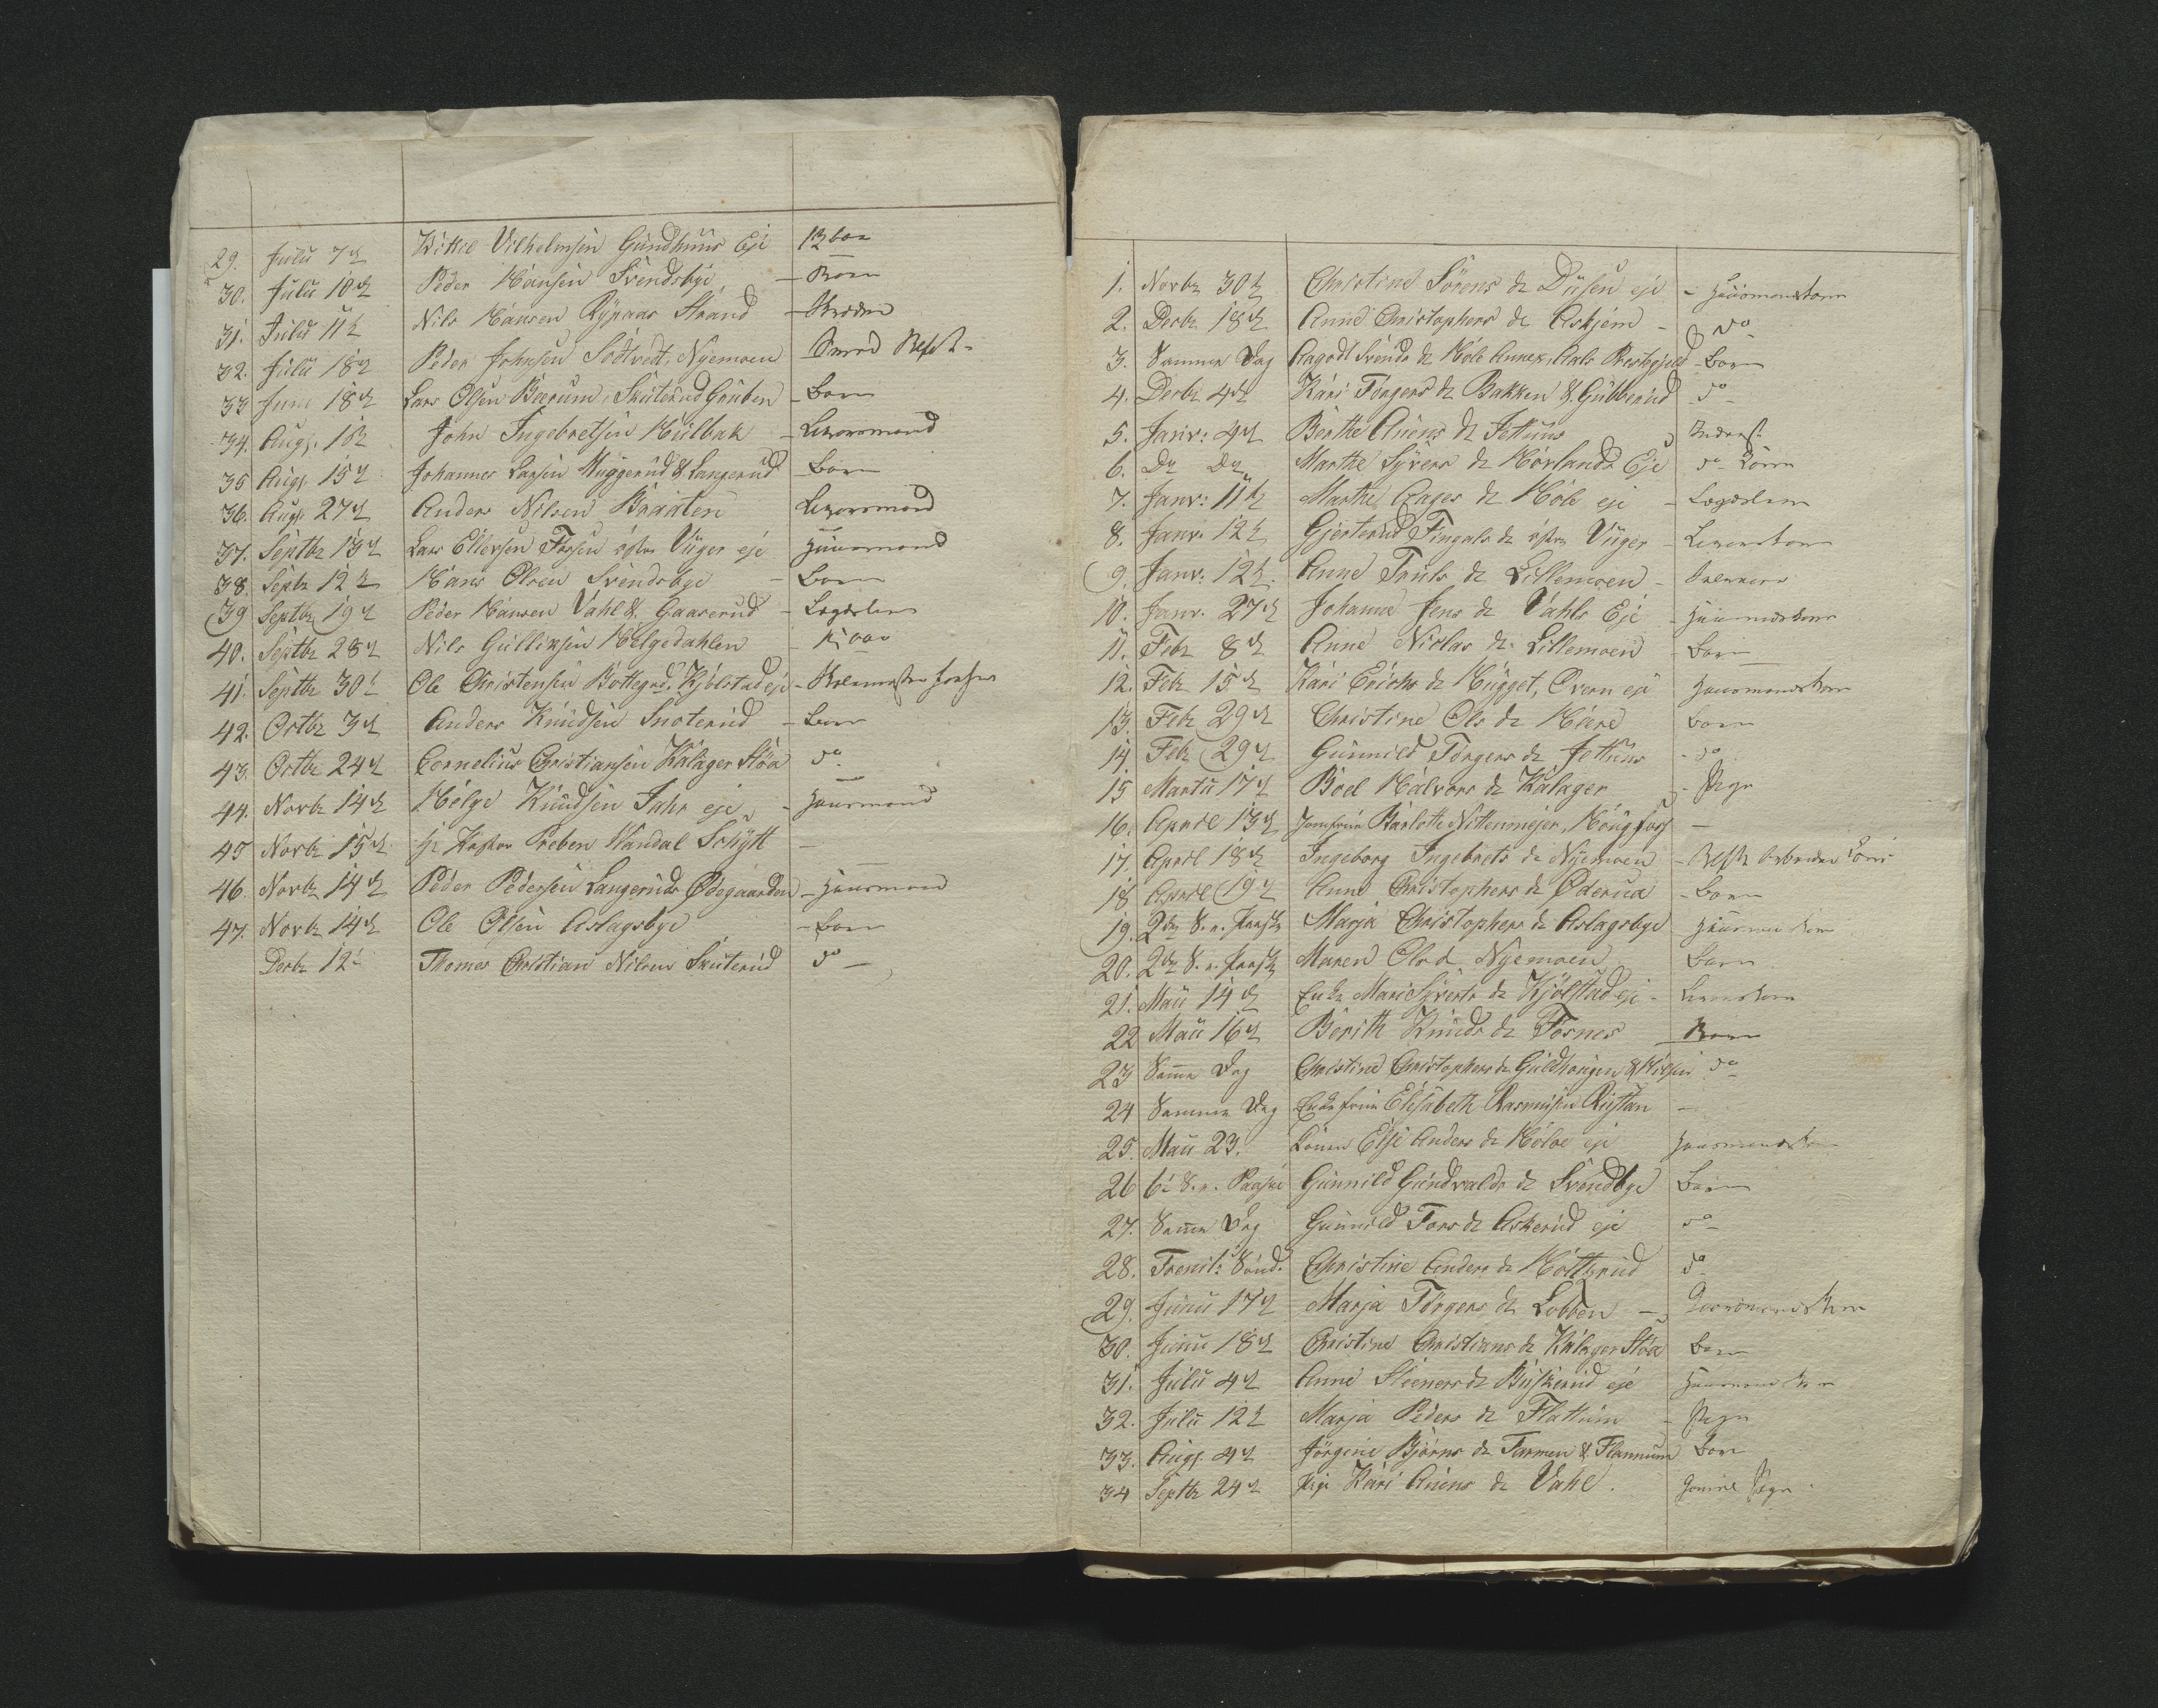 29. Julii 7de Kittil Vilhelmsen Gundhuus Eje
30. Julii 10de Peder Hansen Svendsbye - Barn
31. Julii 11te Nils Hansen Strand
32. Julii 18de Peder Johnsen Sødtvedt, Nyemoen - Smed
33 Juni 18de Lars Olsen Bærum, Skuterud Gruben - Barn
34. Augs. John Ingebretsen Hulbak - Leyermand
35 Augs. 15de Johannes Larsen Muggerud & Langerud Barn
36. Augs. 27de Anders Nilsen Braaten Leyermand
37. Septbr 13de Lars Ellevsen Fossen østre Viiger eje Huusmand
38. Septbr 12te Hans Olsen Svendsbye - Barn
39 Septbr 19de Peder Hansen Vahl & Gaaserud - Lægdslem
40. Septbr 28de Nils Gulliksen Helgedahlen
41. Septbr 30te Ole Christensen Bottegrd. Kjølstad eje
42. Octbr 3de Anders Knudsen Snoterud - Barn
43. Octbr 24de Cornelius Christiansen Kalager Støa do
44. Novbr 14de Helge Knudsen Jahr eje - Huusmand
45 Novbr 15de Hr Pastor Preben Wandal Schytt -
46. Novbr 14de Peder Pedersen Langeruds Ødegaarden - Huusmand
47. Novbr 14de Ole Olsen Aslagsbye - Barn
Decbr 12te Thomas Christian Nilsen Skuterud do -
1. Novbr 30te Christine Sørens dr Diisen eje - Huusmandskone
2. Decbr 18de Anne Christophers dr Askjem - do
3. Samme Dag Aagodt Svends dr Hole Annex, Aals Præstegjeld - Barn
4. Decbr 4de Kari Torgers dr Bakken & Gubberud do
5. Janv: 4de Berthe Auens dr Jelhuus Inderst
6. Do Do Marthe Syvers dr Hovlands Eje do
7. Janv: 11te Marthe Aages dr Hole eje - Lægdslem
8. Janv: 12te Gjertrud Fingals dr østre Viiger -
9. Janv: 12te. Anne Truls dr Lillemoen -
10. Janv. 27de Johanne Jens dr Vahls Eje - Huusmandskone
11. Febr 8de Anne Niclas dr Lillemoen - Barn
12. Febr 15de Kari Erichs dr Hugget, Overn eje Huusmandskone
13. Febr 29de Christine Ols dr Haere Barn
14 Febr 29de Gunnild Torgers dr Jelhuus - do
15 Martii 17de Boel Halvors dr Kalager - Pige
16. April 13de Jomfrue Bärlotte Nittenmejer, Hougfoss -
17. April 18de Ingeborg Ingebrets dr Nyemoen
18 April 19de Anne Christophers dr Øderud - Barn
19. 2den S. e. Paaske Marja Christophers dr Aslagsbye
20. 2den S. e. Paaske Maren Ols d. Nyemoen Barn
21. Maii 14de Enke Mari Syverts dr Kjølstad eje -
22 Maii 16de Berith Knuds dr Fosnes Barn
23 Samme Dag Christine Christophers dr Guldhaugen & Hilsen do
24 Samme Dag Enkefrue Elisabeth Rasmusen Riistan -
25. Maii 23. Konen Else Anders dr Hole eje Huusmandskone
26 6te S. e. Paaske Gunnild Gundvalds dr Svendbye Barn
27. Samme Dag Gunnild Tors dr Askerud eje do
28. Trenit: Sønd. Christine Anders dr Holtterud do
29. Junii 17de Marja Torgers dr Lobben - Gaardmandskone
30. Junii 18de Christine Christians dr Kalager Støa Barn
31. Julii 4de Anne Steeners dr Buskerud eje Huusmandskone
32. Julii 12te Marja Peders dr Flattum - Pige
33. Augs. 4de Jørgine Bjørns dr Tarmen & Flannum Barn
34 Septbr 24de Pige Kari Auens dr Vahl. Gammel Pige